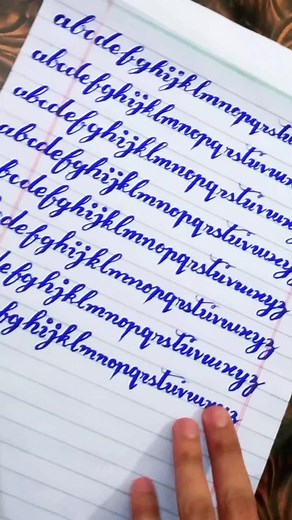 abcdefghijklmnopqrstu
abcdefghijklmnopqrstuvw
abcdefghijklmnopqrstuvwx
abcdefghijklmnopqrstuvwxy
bcdefghijklmnopqrstuvwxyz
defghijklmnopqrstuvwxyz
efghijklmnopqrstuvwxyz
fghijklmnopqrstuvwxyz